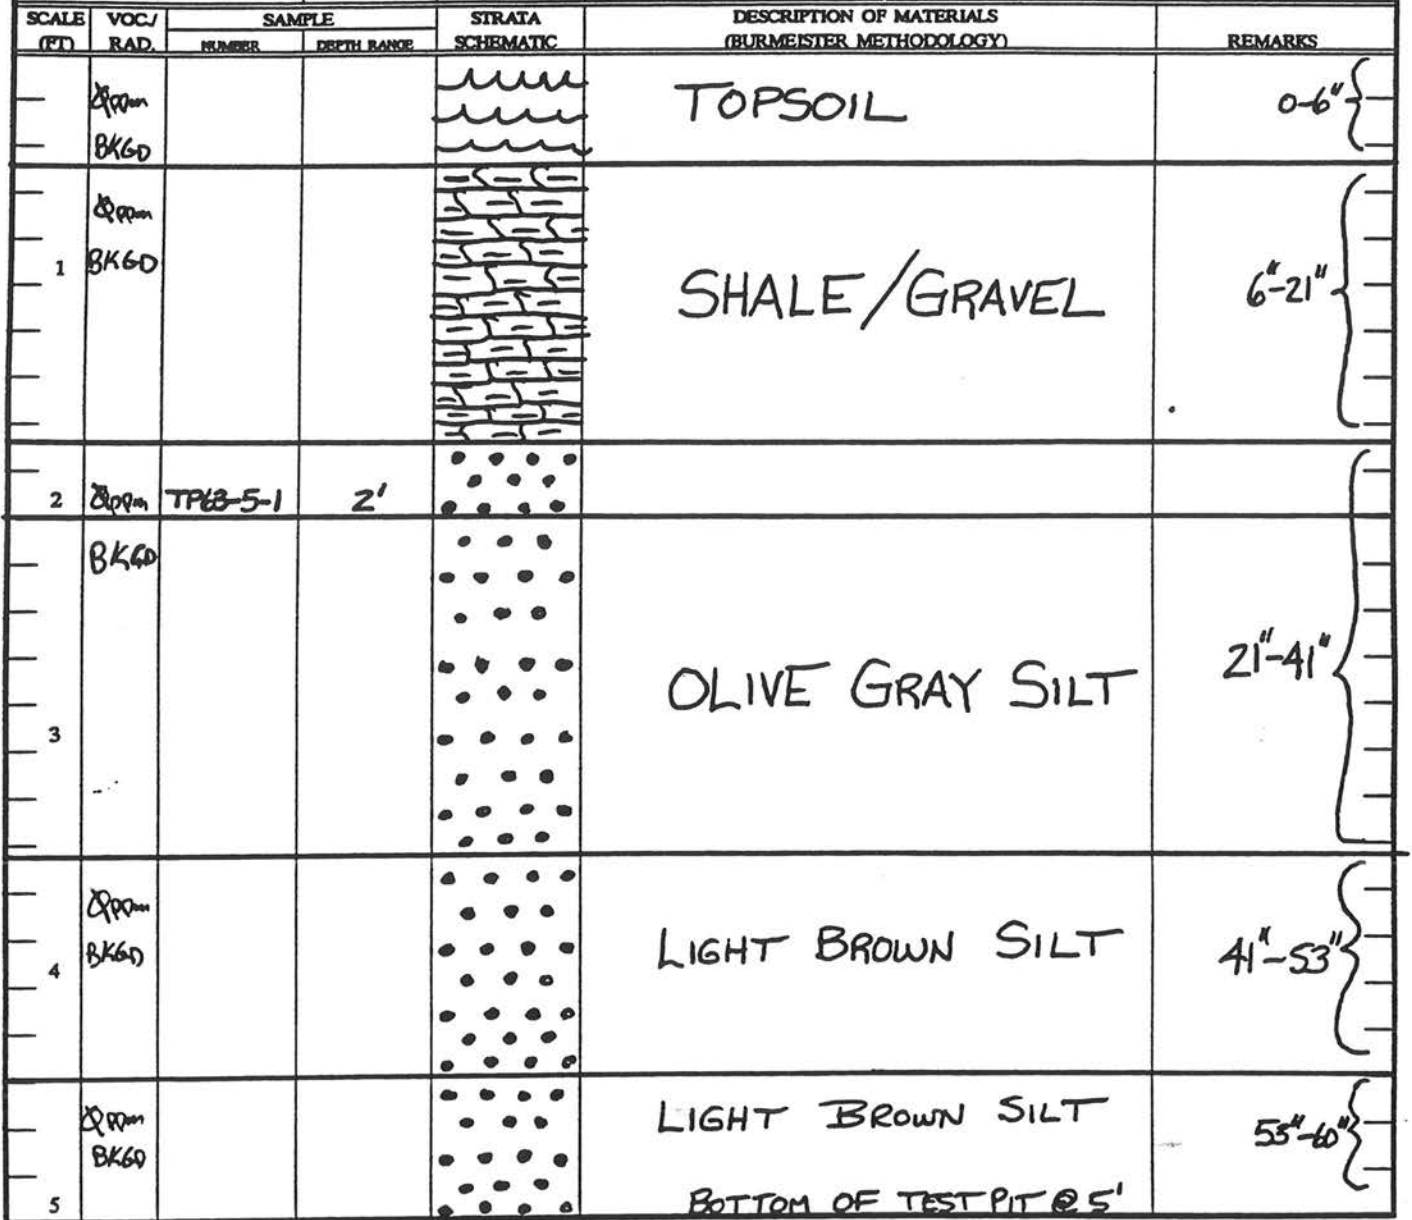 SCALE (FT) VOC./ RAD. SAMPLE NUMBER DEPTH RANGE STRATA SCHEMATIC DESCRIPTION OF MATERIALS (BURMEISTER METHODOLOGY) REMARKS
0ppm TOPSOIL 0-6"
BKGD
0ppm
1 BKGD SHALE/GRAVEL 6"-21"
2 0ppm TP63-5-1 2'
BKGD
OLIVE GRAY SILT 21"-41"
3
0ppm
4 BKGD LIGHT BROWN SILT 41"-53"
0ppm LIGHT BROWN SILT 53"-60"
BKGD
5 BOTTOM OF TEST PIT @ 5'